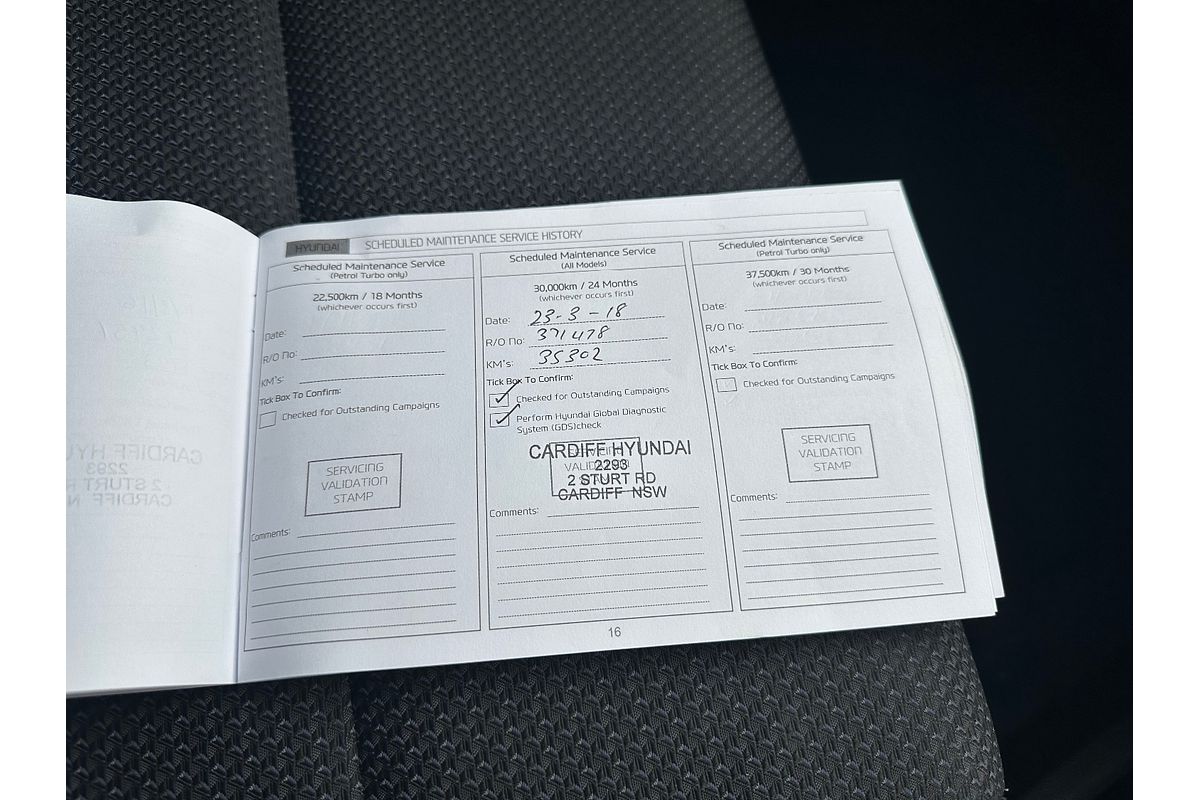 HYUNDAI SCHEDULED MAINTENANCE SERVICE HISTORY
Scheduled Maintenance Service
(Petrol Turbo only)
22,500km / 18 Months
(whichever occurs first)
Date:
R/O No:
KM's:
Tick Box To Confirm:
Checked for Outstanding Campaigns
SERVICING
VALIDATION
STAMP
Comments:
Scheduled Maintenance Service
(All Models)
30,000km / 24 Months
(whichever occurs first)
Date: 23-3-18
R/O No: 371478
KM's: 35302
Tick Box To Confirm:
Checked for Outstanding Campaigns
Perform Hyundai Global Diagnostic
System (GDS)check
CARDIFF HYUNDAI
2293
2 STURT RD
CARDIFF NSW
Comments:
Scheduled Maintenance Service
(Petrol Turbo only)
37,500km / 30 Months
(whichever occurs first)
Date:
R/O No:
KM's:
Tick Box To Confirm:
Checked for Outstanding Campaigns
SERVICING
VALIDATION
STAMP
Comments:
16